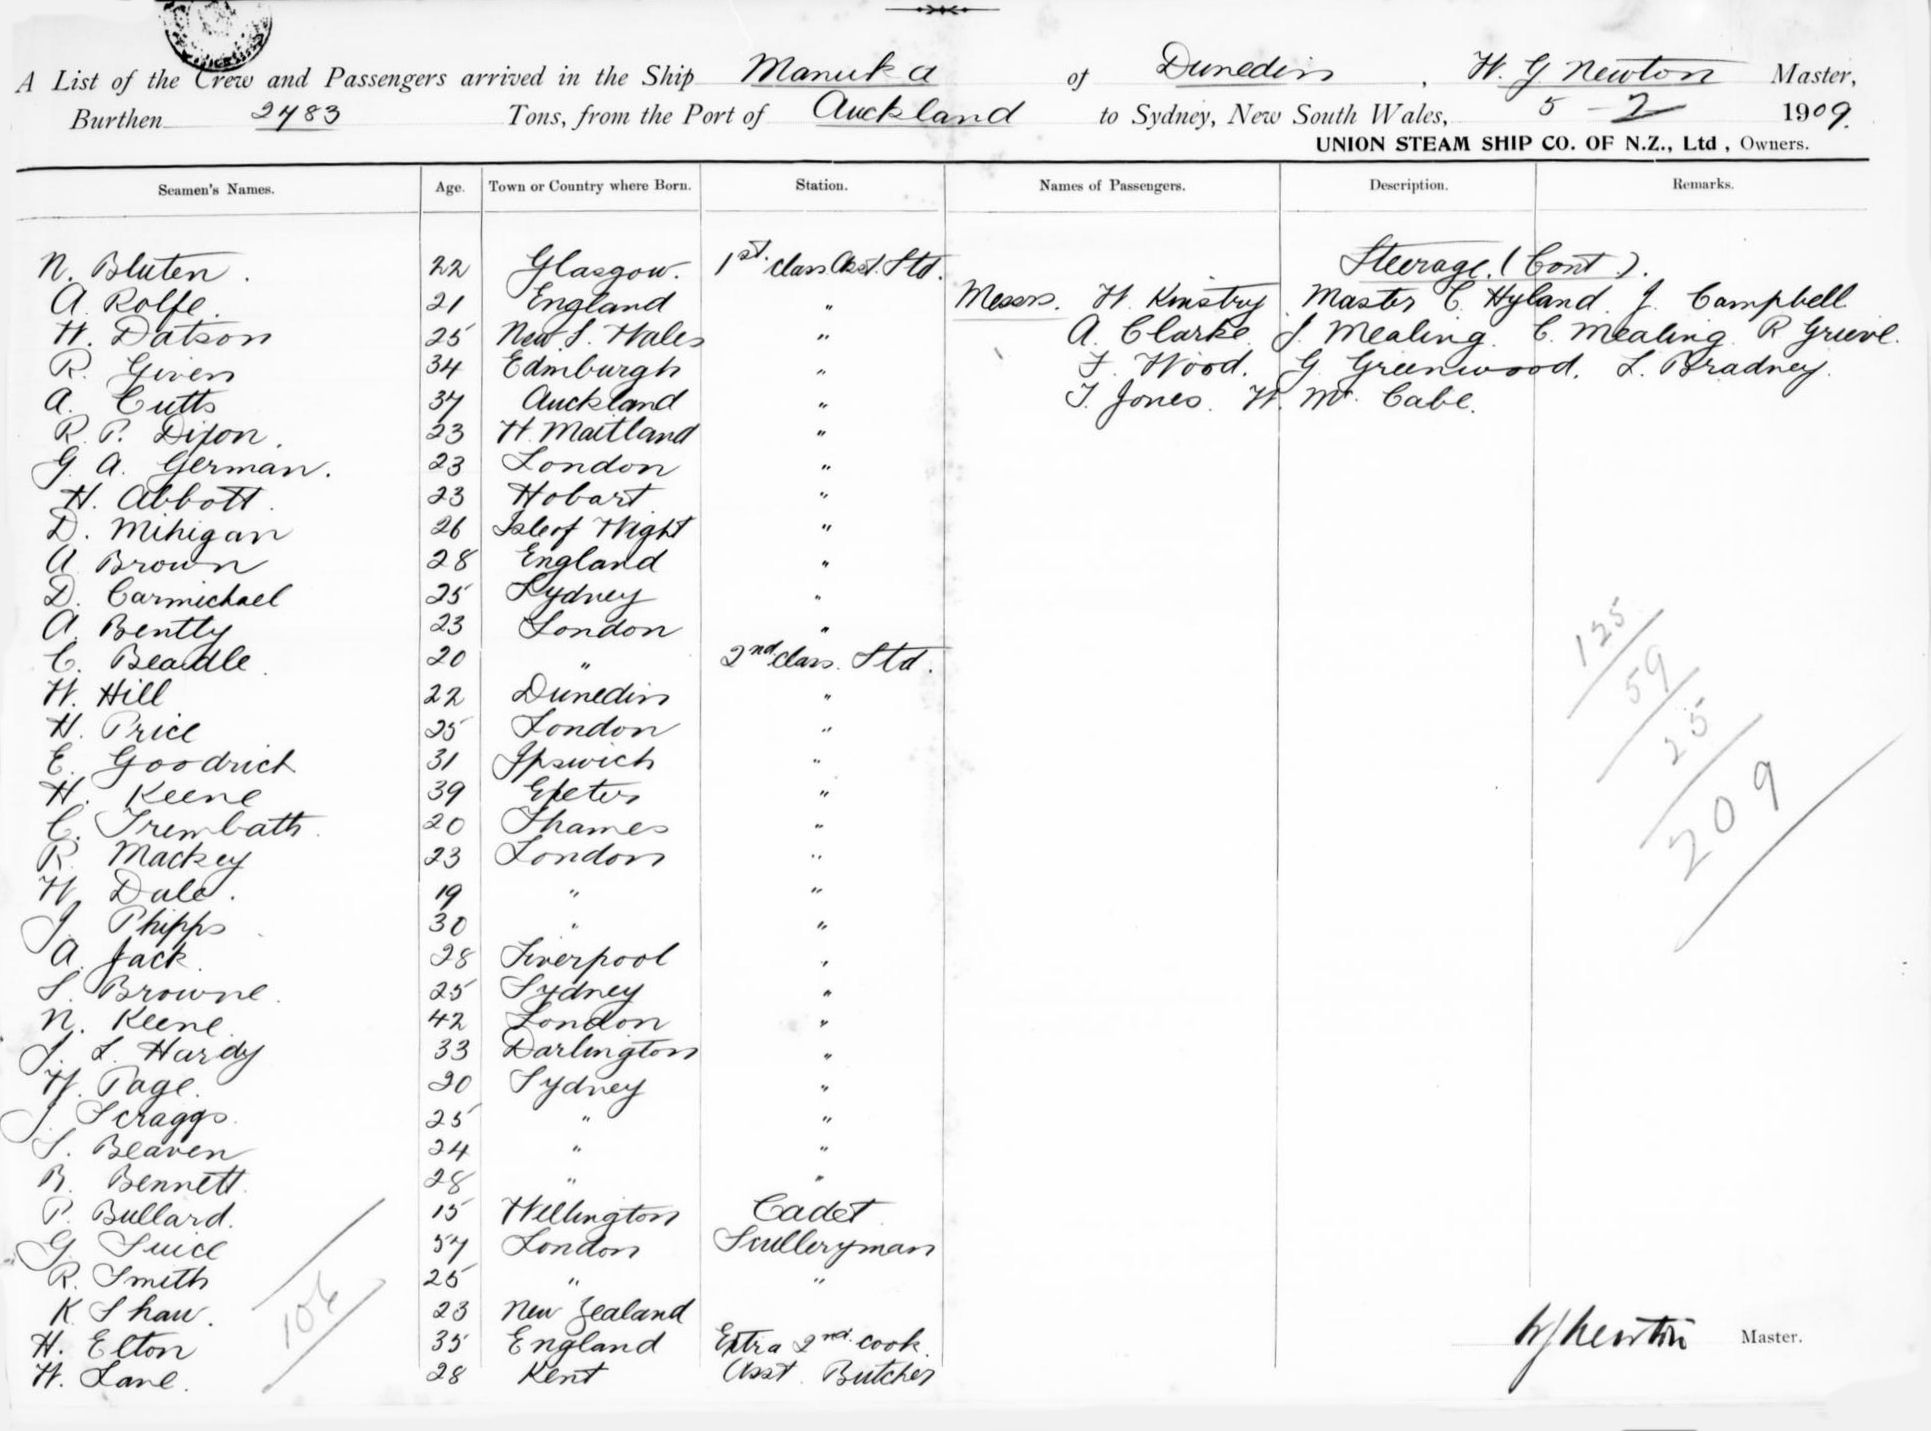 A List of the Crew and Passengers arrived in the Ship Manuka of Dunedin, W. G Newton Master,
Burthen 2483 Tons, from the Port of Auckland to Sydney, New South Wales, 5 - 2 1909.
UNION STEAM SHIP CO. OF N.Z., Ltd, Owners.
Seamen's Names. Age. Town or Country where Born. Station. Names of Passengers. Description. Remarks.
N. Bluten. 22 Glasgow. 1st. class. Asst. Std. Steerage. (Cont.).
A. Rolfe. 21 England " Messrs. W. Kinstry Master C. Hyland. J. Campbell
W. Datson 25 New S. Wales " A. Clarke J. Mealing. C. Mealing. R Grieve.
R. Given 34 Edinburgh " F. Wood. G. Greenwood. L. Bradney.
A. Cutts 37 Auckland " T. Jones. W. Mc. Cabe.
R. P. Dixon. 23 W. Maitland "
G. A. German. 23 London "
H. Abbott. 23 Hobart "
D. Mihigan 26 Isle of Wight "
A Brown 28 England "
D. Carmichael 25 Sydney "
A. Bently 23 London "
C. Beadle 20 " 2nd. class. Std.
W. Hill 22 Dunedin "
H. Price 25 London "
E. Goodrich 31 Ipswich "
H. Keene 39 Exeter "
C. Trembath. 20 Thames "
R. Mackey 23 London "
W. Dale. 19 " "
J. Phipps 30 " "
A. Jack. 28 Liverpool "
S. Browne. 25 Sydney "
N. Keene. 42 London "
J. L. Hardy 33 Darlington "
W. Page. 20 Sydney "
J. Scraggs. 25 " "
S. Beaven 24 " "
B. Bennett. 28 " "
P. Bullard. 15 Wellington Cadet
G. Suice 57 London Sculleryman
R. Smith 25 " "
K Shaw. 23 New Zealand
H. Elton 35 England Extra 2nd. cook.
W. Lane. 28 Kent Asst. Butcher
106
125
59
25
209
W G Newton Master.